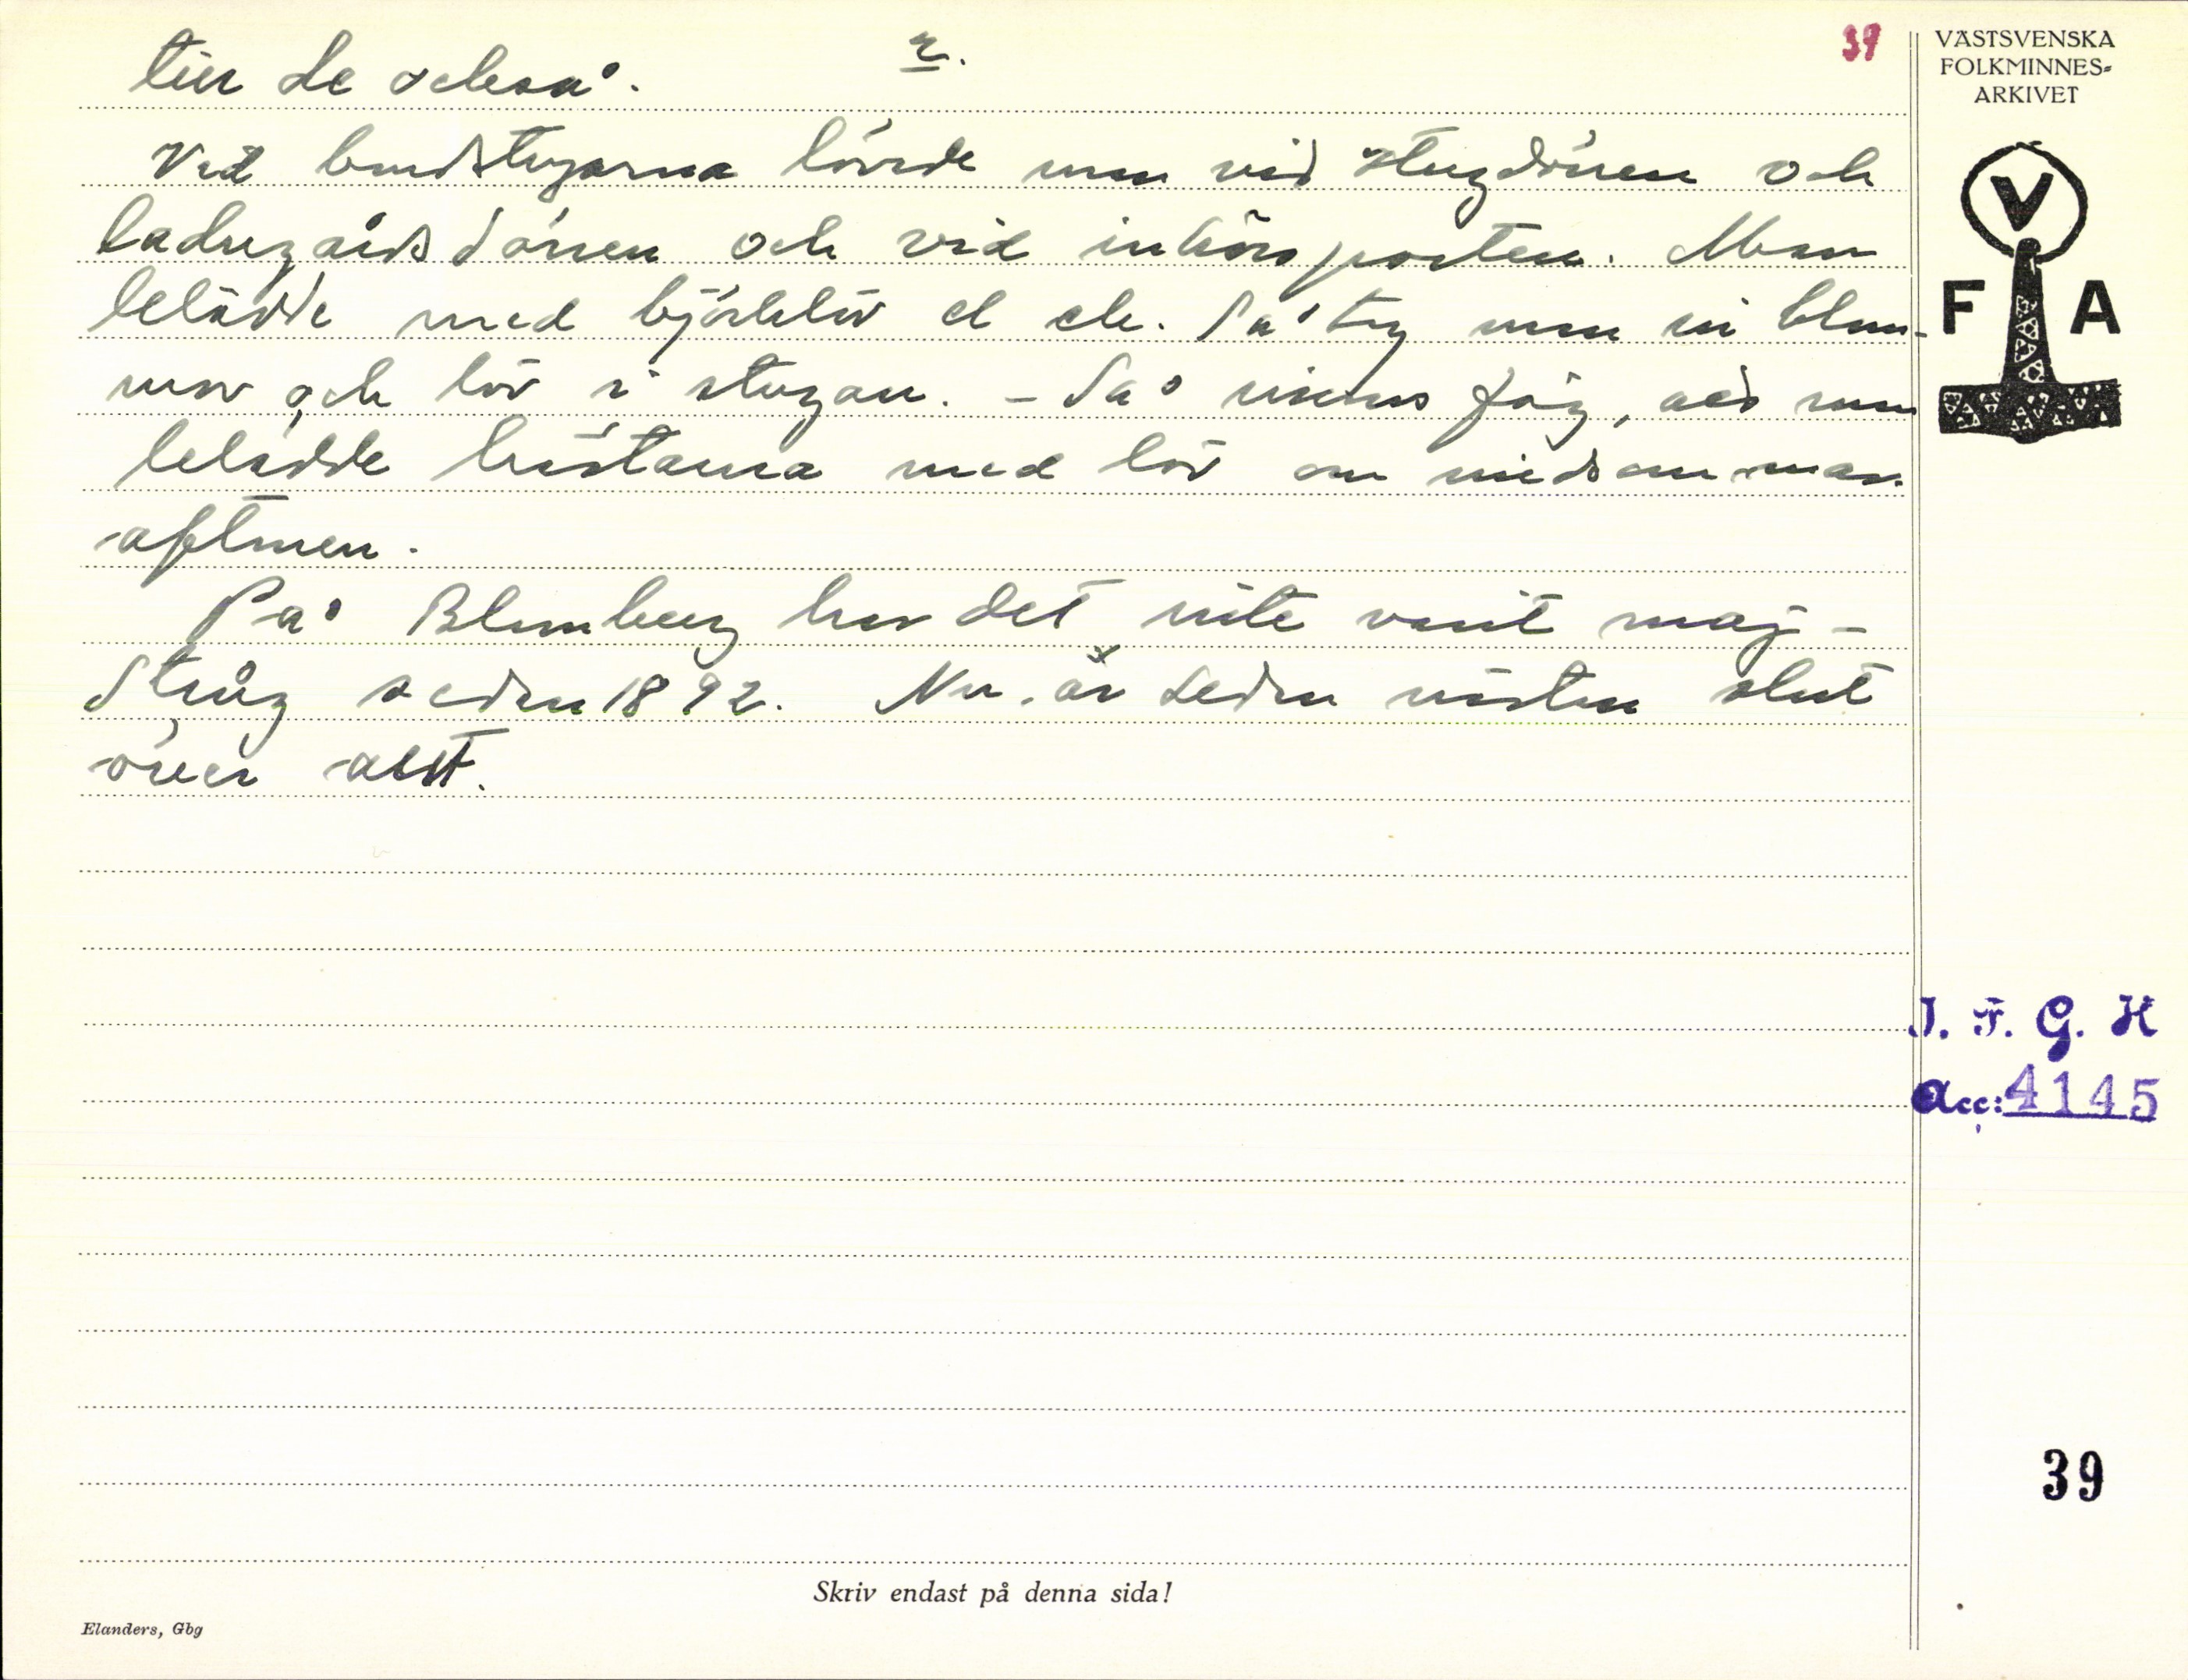 2.
39
de också.
Vid bondstugorna lövade man vid stugdörren och
ladugårdsdörren och vid inkörsporten. Man
beklädde med björklöv el ek. Så tog man in blom-
mor och löv i stugan. - Så minns jag, att man
beklädde hästarna med löv om midsommar-
aftonen.
På Blomberg har det inte varit maj-
stång sedan 1892. Nu är seden nästan slut
över allt.
VÄSTSVENSKA
FOLKMINNES-
ARKIVET
V
F A
I. F. G. H
Acc: 4145
39
Skriv endast på denna sida!
Elanders, Gbg